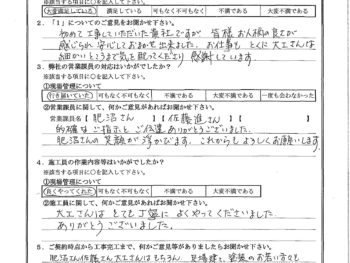 ※該当する項目に○を記入して下さい。
大変満足している 満足している 可もなく不可もなく 不満である 大変不満である
2.「1」についてのご意見をお聞かせ下さい。
初めて工事していただいた貴社ですが 皆様 お人柄の良さが
感じられ 安心しておまかせ出来ました。お仕事も とくに大工さんは
細かいところまで気を配ってくださり 感謝しています。
3.弊社の営業課員の対応はいかがでしたか？
※該当する項目に○を記入して下さい。
①現場管理について
行き届いていた 可もなく不可もなく 不満である 大変不満である 一度も会わなかった
②営業課員に関して、何かご意見があればお聞かせ下さい。
営業課員名【 肥沼さん 】【 佐藤進さん 】
的確な ご指示と ご伝達 ありがとうございました。
肥沼さんの笑顔が 浮かびます。これからも よろしくお願いします
4.施工員の作業内容等はいかがでしたか？
※該当する項目に○を記入して下さい。
①現場管理について
良くやってくれた 可もなく不可もなく 不満である 大変不満である
②施工員に関して、何かご意見があればお聞かせ下さい。
大工さんは とても丁寧に よくやってくださいました。
ありがとうございました。
5.ご契約時点から工事完工まで、何かご意見等がありましたらお聞かせ下さい。
肥沼さん佐藤さん大工さんはもちろん 足場建と 塗装のお若い方々も